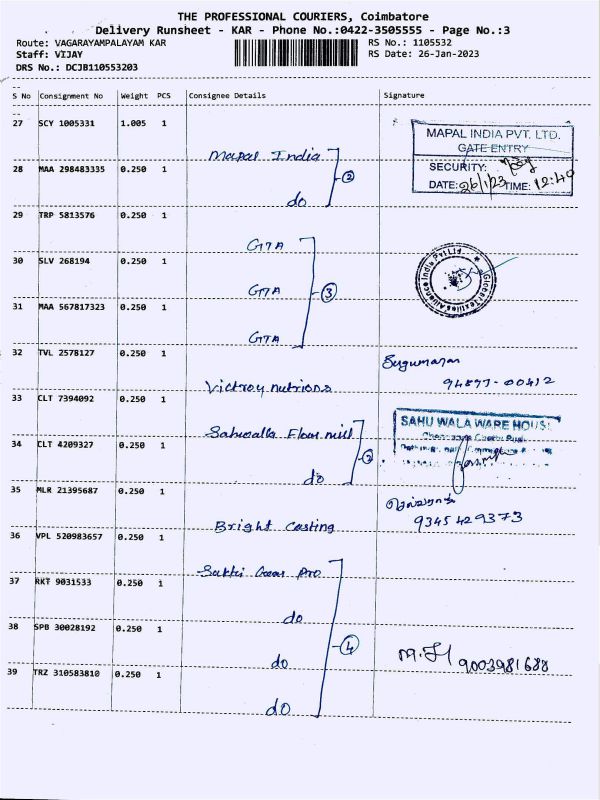 THE PROFESSIONAL COURIERS, Coimbatore
Delivery Runsheet - KAR - Phone No.:0422-3505555 - Page No.:3
Route: VAGARAYAMPALAYAM KAR
RS No.: 1105532
Staff: VIJAY
RS Date: 26-Jan-2023
DRS No.: DCJB110553203
S No Consignment No Weight PCS Consignee Details Signature
27 SCY 1005331 1.005 1
MAPAL INDIA PVT. LTD.
GATE ENTRY
Mapal India
SECURITY:
28 MAA 298483335 0.250 1
2
DATE: 26/1/23 TIME: 12:40
do
29 TRP 5813576 0.250 1
GTA
30 SLV 268194 0.250 1
Global Textiles Alliance India Pvt Ltd
GTA
3
31 MAA 567817323 0.250 1
GTA
32 TVL 2578127 0.250 1
94877-00412
Victroy nutrions
33 CLT 7394092 0.250 1
SAHU WALA WARE HOUSE
Sahuwalla Flour mill
34 CLT 4209327 0.250 1
2
do
35 MLR 21395687 0.250 1
9345429373
Bright Casting
36 VPL 520983657 0.250 1
Sakthi Gear Pro
37 RKT 9031533 0.250 1
do
38 SPB 30028192 0.250 1
4
do
9003981688
39 TRZ 310583810 0.250 1
do